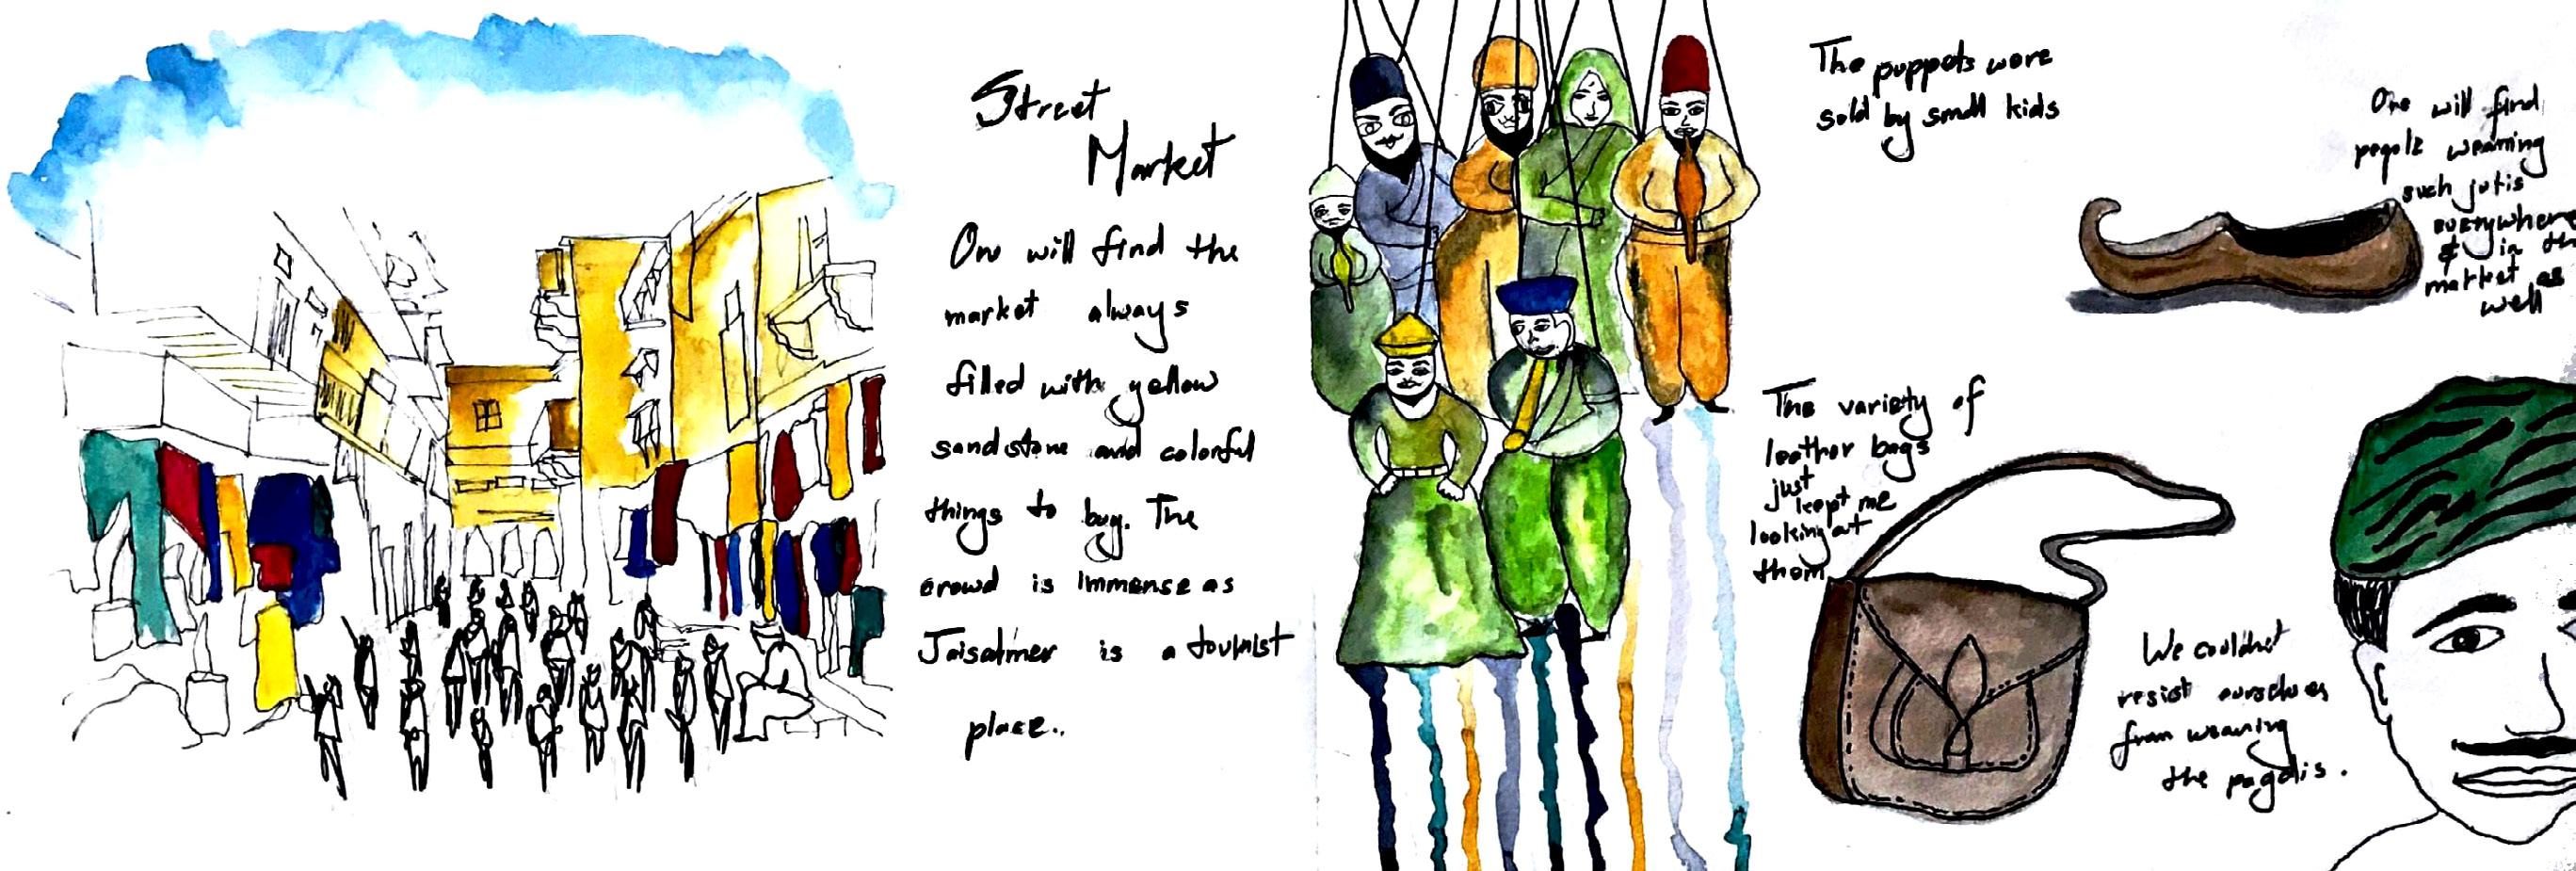 Street
Market
One will find the
market always
filled with yellow
sandstone and colorful
things to buy. The
crowd is immense as
Jaisalmer is a tourist
place..
The puppets were
sold by small kids
One will find
people wearning
such jutis
everywhere
& in the
market as
well
The variety of
leather bags
just
kept me
looking at
them
We couldnt
resist ourselves
from wearing
the pagdis.